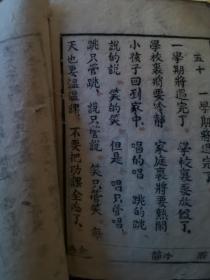 五十　一學期將過完了
一學期將過完了　學校裏要放假了
學校裏將要冷靜　家庭裏將要熱鬧
小孩子回到家中，唱的唱　跳的跳
說的說　笑的笑　但是　唱只管唱，
跳只管跳，說只管說，笑只管笑，每
天也要溫溫課，不要把功課全忘了。
鬧　冷靜